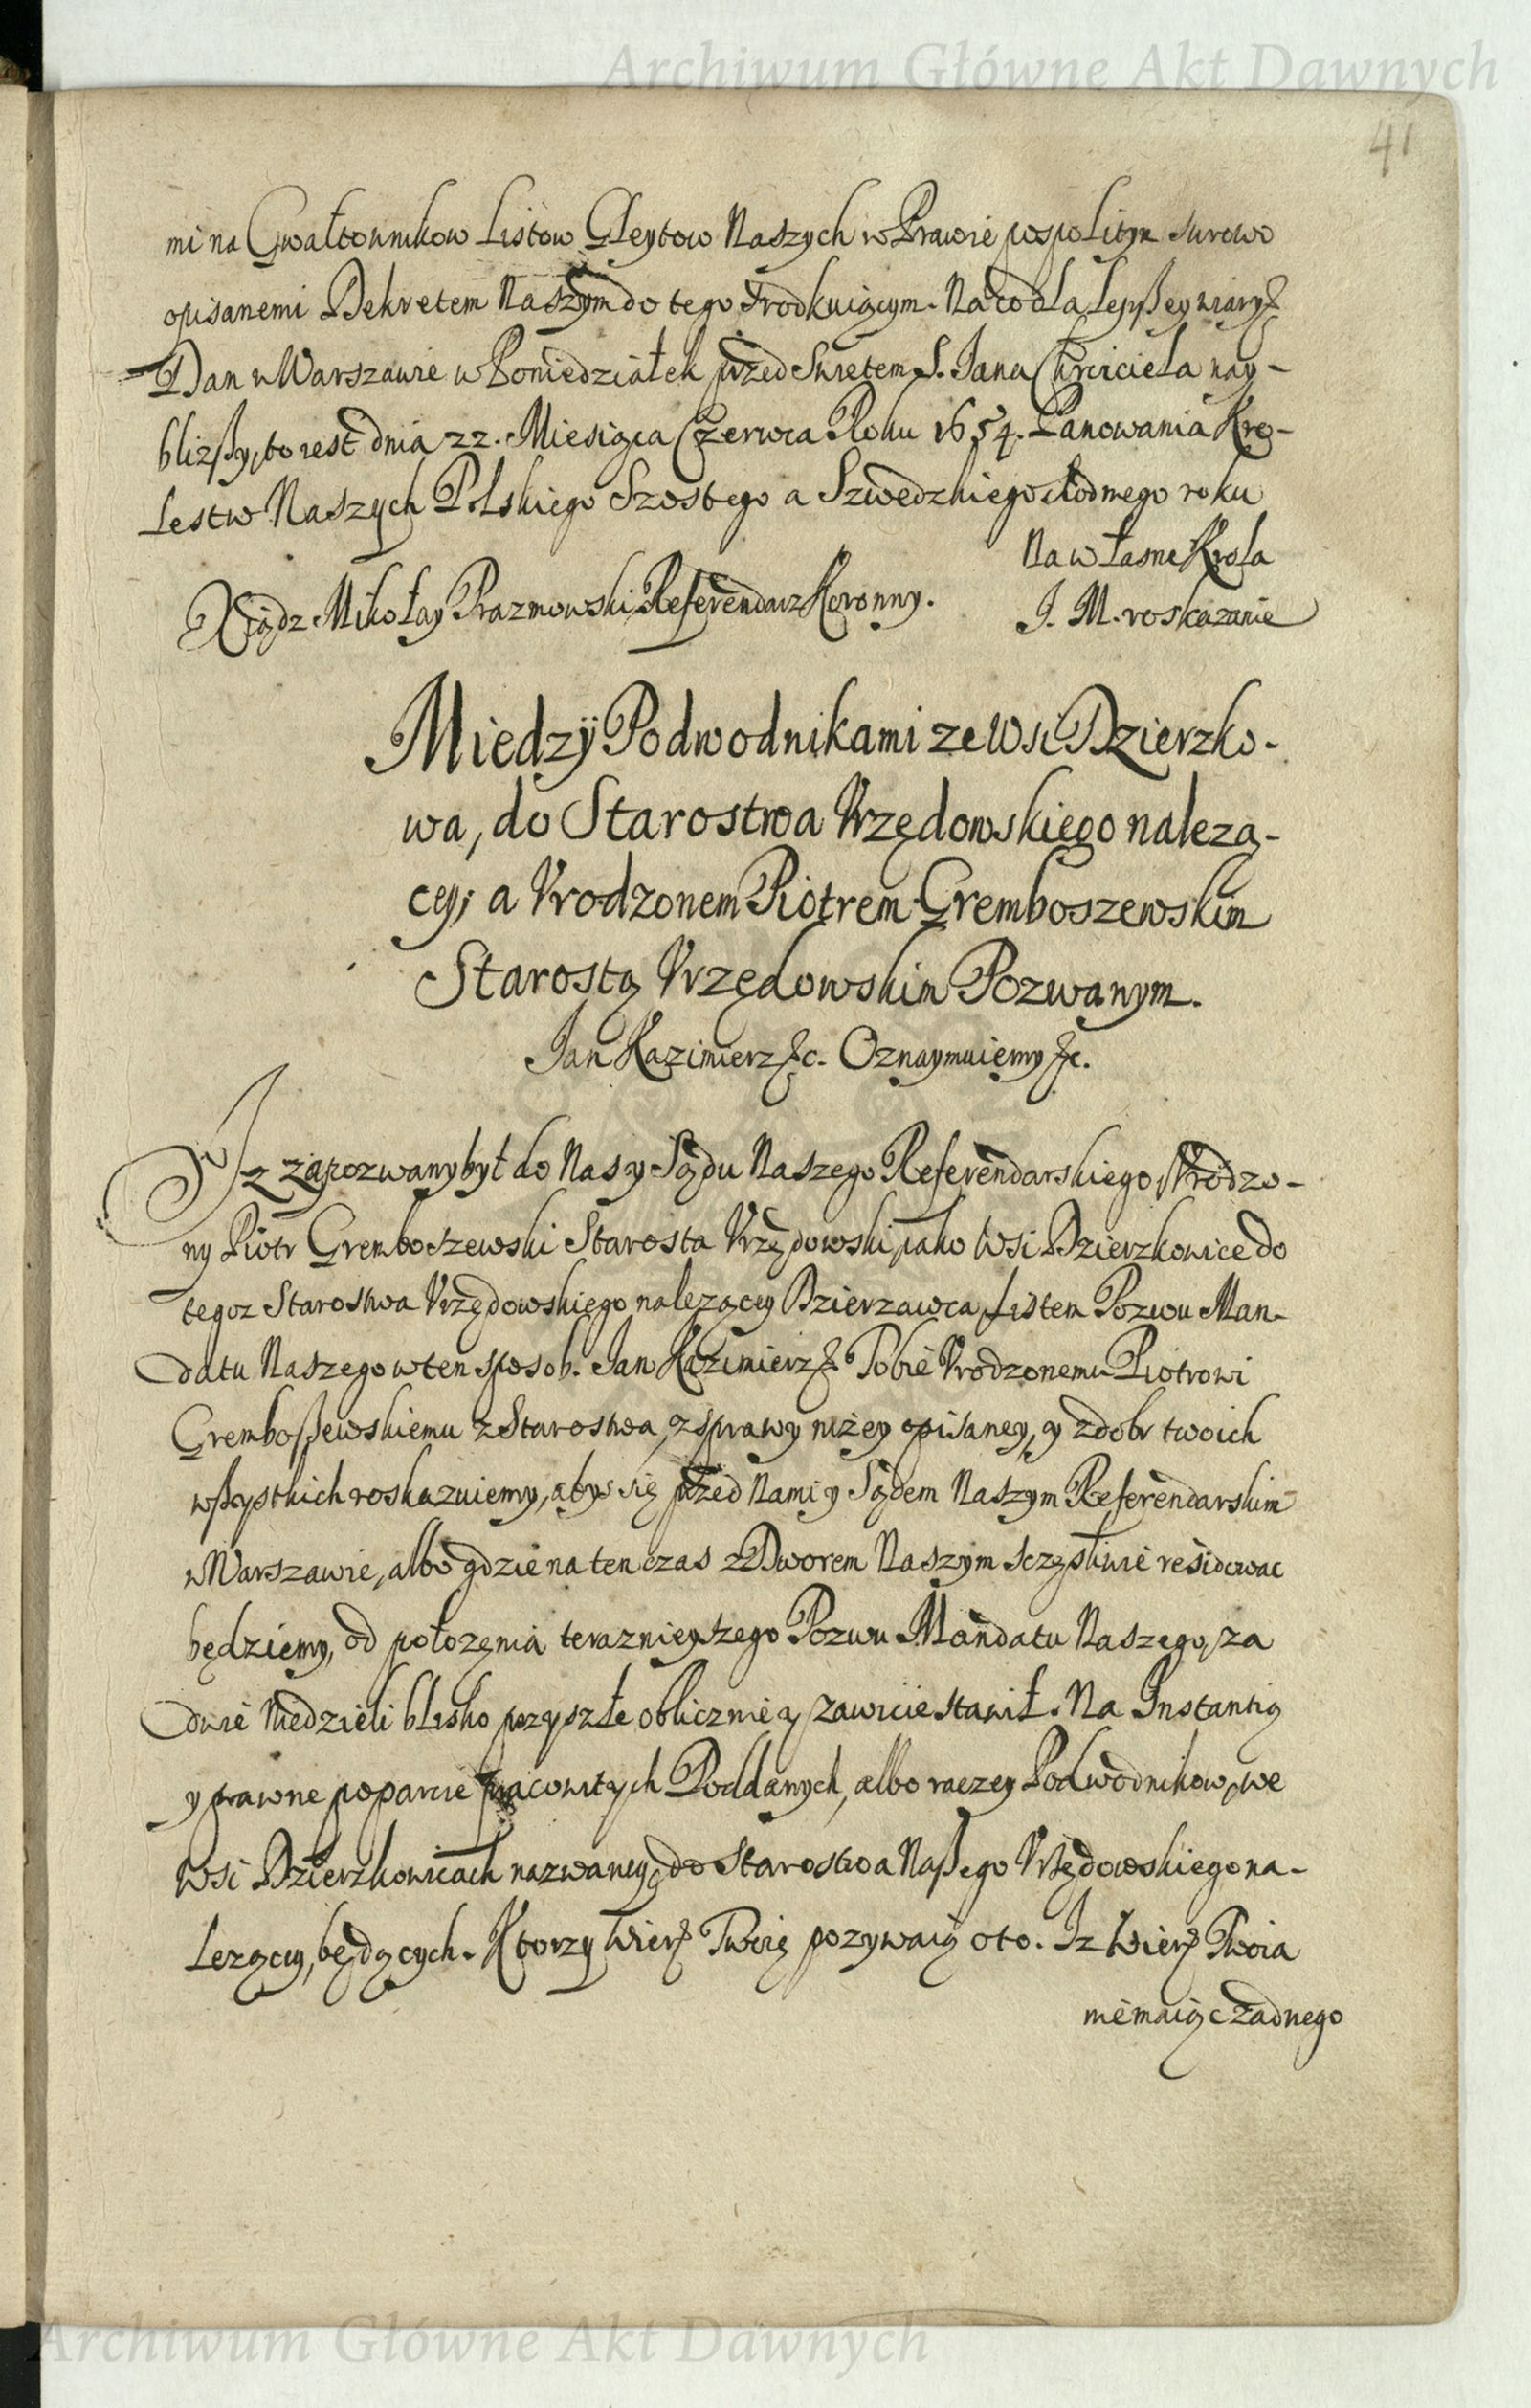 Archiwum Główne Akt Dawnych
41
mi na Gwałtownikow Listow Gleytow Naszych w Prawie pospolitym surowo
opisanemi Dekretem Naszym do tego srodkuiącym. Na co dla lepßey wiary &
Dan w Warszawie w Poniedziałek przed Swietem S. Jana Chrzciciela nay-
blizßy, to iest dnia 22. Miesiąca Czerwca Roku 1654. Panowania Kro-
lestw Naszych Polskiego Szostego a Szwedzkiego siodmego roku
Na własne Krola
Xiądz Mikołay Prazmowski Referendarz Koronny. J. M. roskazanie
Miedzÿ Podwodnikami ze Wsi Dzierzko-
wa, do Starostwa Vrzędowskiego nalezą-
cey; a Vrodzonem Piotrem Gremboszewskim
Starostą Vrzędowskim Pozwanym.
Jan Kazimierz &c. Oznaymuiemy &c.
Iz zapozwany był do Nas y Sądu Naszego Referendarskiego, Vrodzo-
ny Piotr Gremboszewski Starosta Vrzędowski, iako Wsi Dzierzkowice do
tegoz Starostwa Vrzędowskiego nalezącey Dzierzawca, Listem Pozwu Man-
datu Naszego w ten sposob. Jan Kazimierz & Tobie Vrodzonemu Piotrowi
Grembosßewskiemu z Starostwa, z sprawy nizey opisaney, y z dobr twoich
wßystkich roskazuiemy, abys się przed Nami y Sądem Naszym Referendarskim
w Warszawie, albo gdzie na ten czas z Dworem Naszym sczęsliwie residowac
będziemy, od połozęnia teraznieyszego Pozwu Mandatu Naszego, za
dwie Niedzieli blisko przyszłe oblicznie y zawicie stawił. Na Instantią
y prawne poparcie pracowitych Poddanych, albo raczey Podwodnikow, we
Wsi Dzierzkowicach nazwaney, do Starostwa Naßego Vrzędowskiego na-
lezącey, będących. Ktorzy Wier& Twoię pozywaią oto. Iz Wier& Twoia
niemaiąc zadnego
Archiwum Główne Akt Dawnych